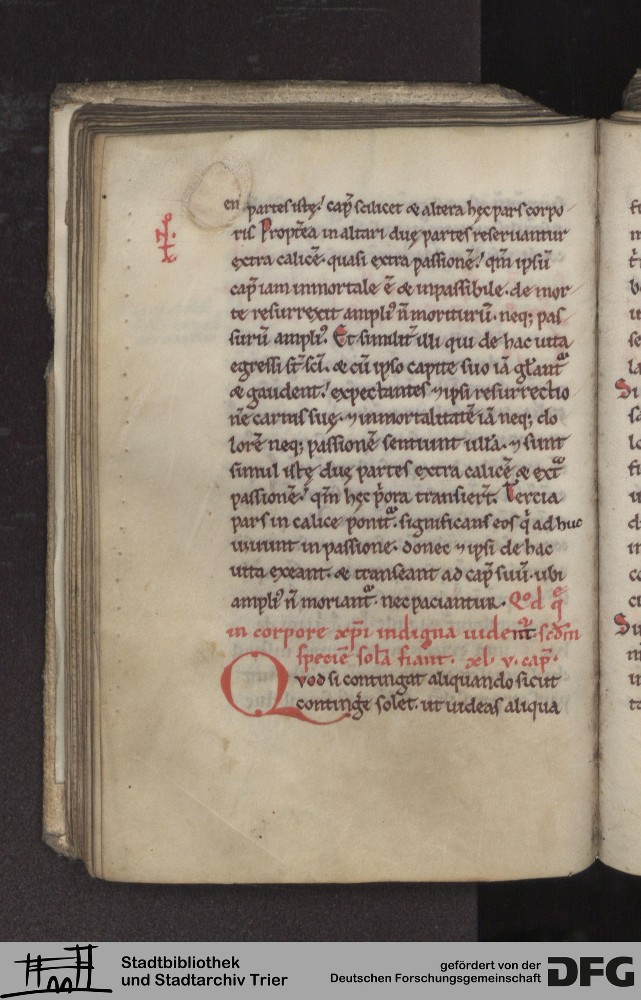 en partes istę. cap̄ scilicet & altera hęc pars corpo
ris Propt̄ea in altari duę partes reseruantur
extra calicē. quasi extra passionē. qm̄ ipsū
cap̄ iam inmortale ē & inpassibile. de mor
te resurrexit ampli᾿ n̄ moriturū. neq; pas
surū ampli᾿. Et similit̄ illi qui de hac uita
egressi st̄ sc̄i. & cū ipso capite suo iā gl̄ant᾿
& gaudent. expectantes ⁊ ipsi resurrectio
nē carnis suę. ⁊ inmortalitatē iā neq; do
lorē neq; passionē sentiunt ullā. ⁊ sunt
simul istę duę partes extra calicē & ext᾿
passionē. qm̄ hęc p̄ora transier̄t. Tercia
pars in calice ponit᾿. significans eos q̇ ad huc
uiuunt in passione. donec ⁊ ipsi de hac
uita exeant. & transeant ad cap̄ suū. ubi
ampli᾿ n̄ moriant᾿. nec paciantur. Qd̊ q̄
in corpore xp̄i indigna uident᾿. sc̄dm
speciē solā fiant. xl. v. cap̄.
Qvod si contingat aliquando sicut
conting̅e solet. ut uideas aliqua
Stadtbibliothek
und Stadtarchiv Trier
gefördert von der
Deutschen Forschungsgemeinschaft
DFG